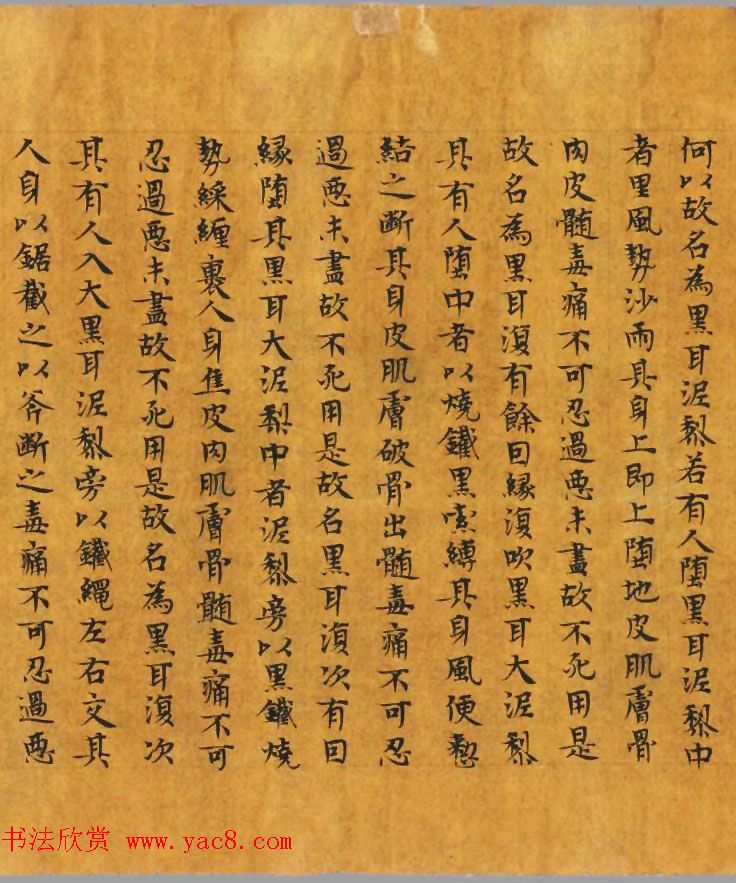 何以故名為黑耳泥犁若有人墮黑耳泥犁中
者黑風熱沙雨其身上即上墮地皮肌膚骨
肉皮髓毒痛不可忍過惡未盡故不死用是
故名為黑耳復有餘因緣復吹黑耳大泥犁
其有人墮中者以燒鐵黑索縛其身風便愁
結之斷其身皮肌膚破骨出髓毒痛不可忍
過惡未盡故不死用是故名黑耳復次有因
緣墮其黑耳大泥犁中者泥犁旁以黑鐵燒
熱綵纏裹人身焦皮肉肌膚骨髓毒痛不可
忍過惡未盡故不死用是故名為黑耳復次
其有人入大黑耳泥犁旁以鐵繩左右交其
人身以鋸截之以斧斷之毒痛不可忍過惡
书法欣赏 www.yac8.com